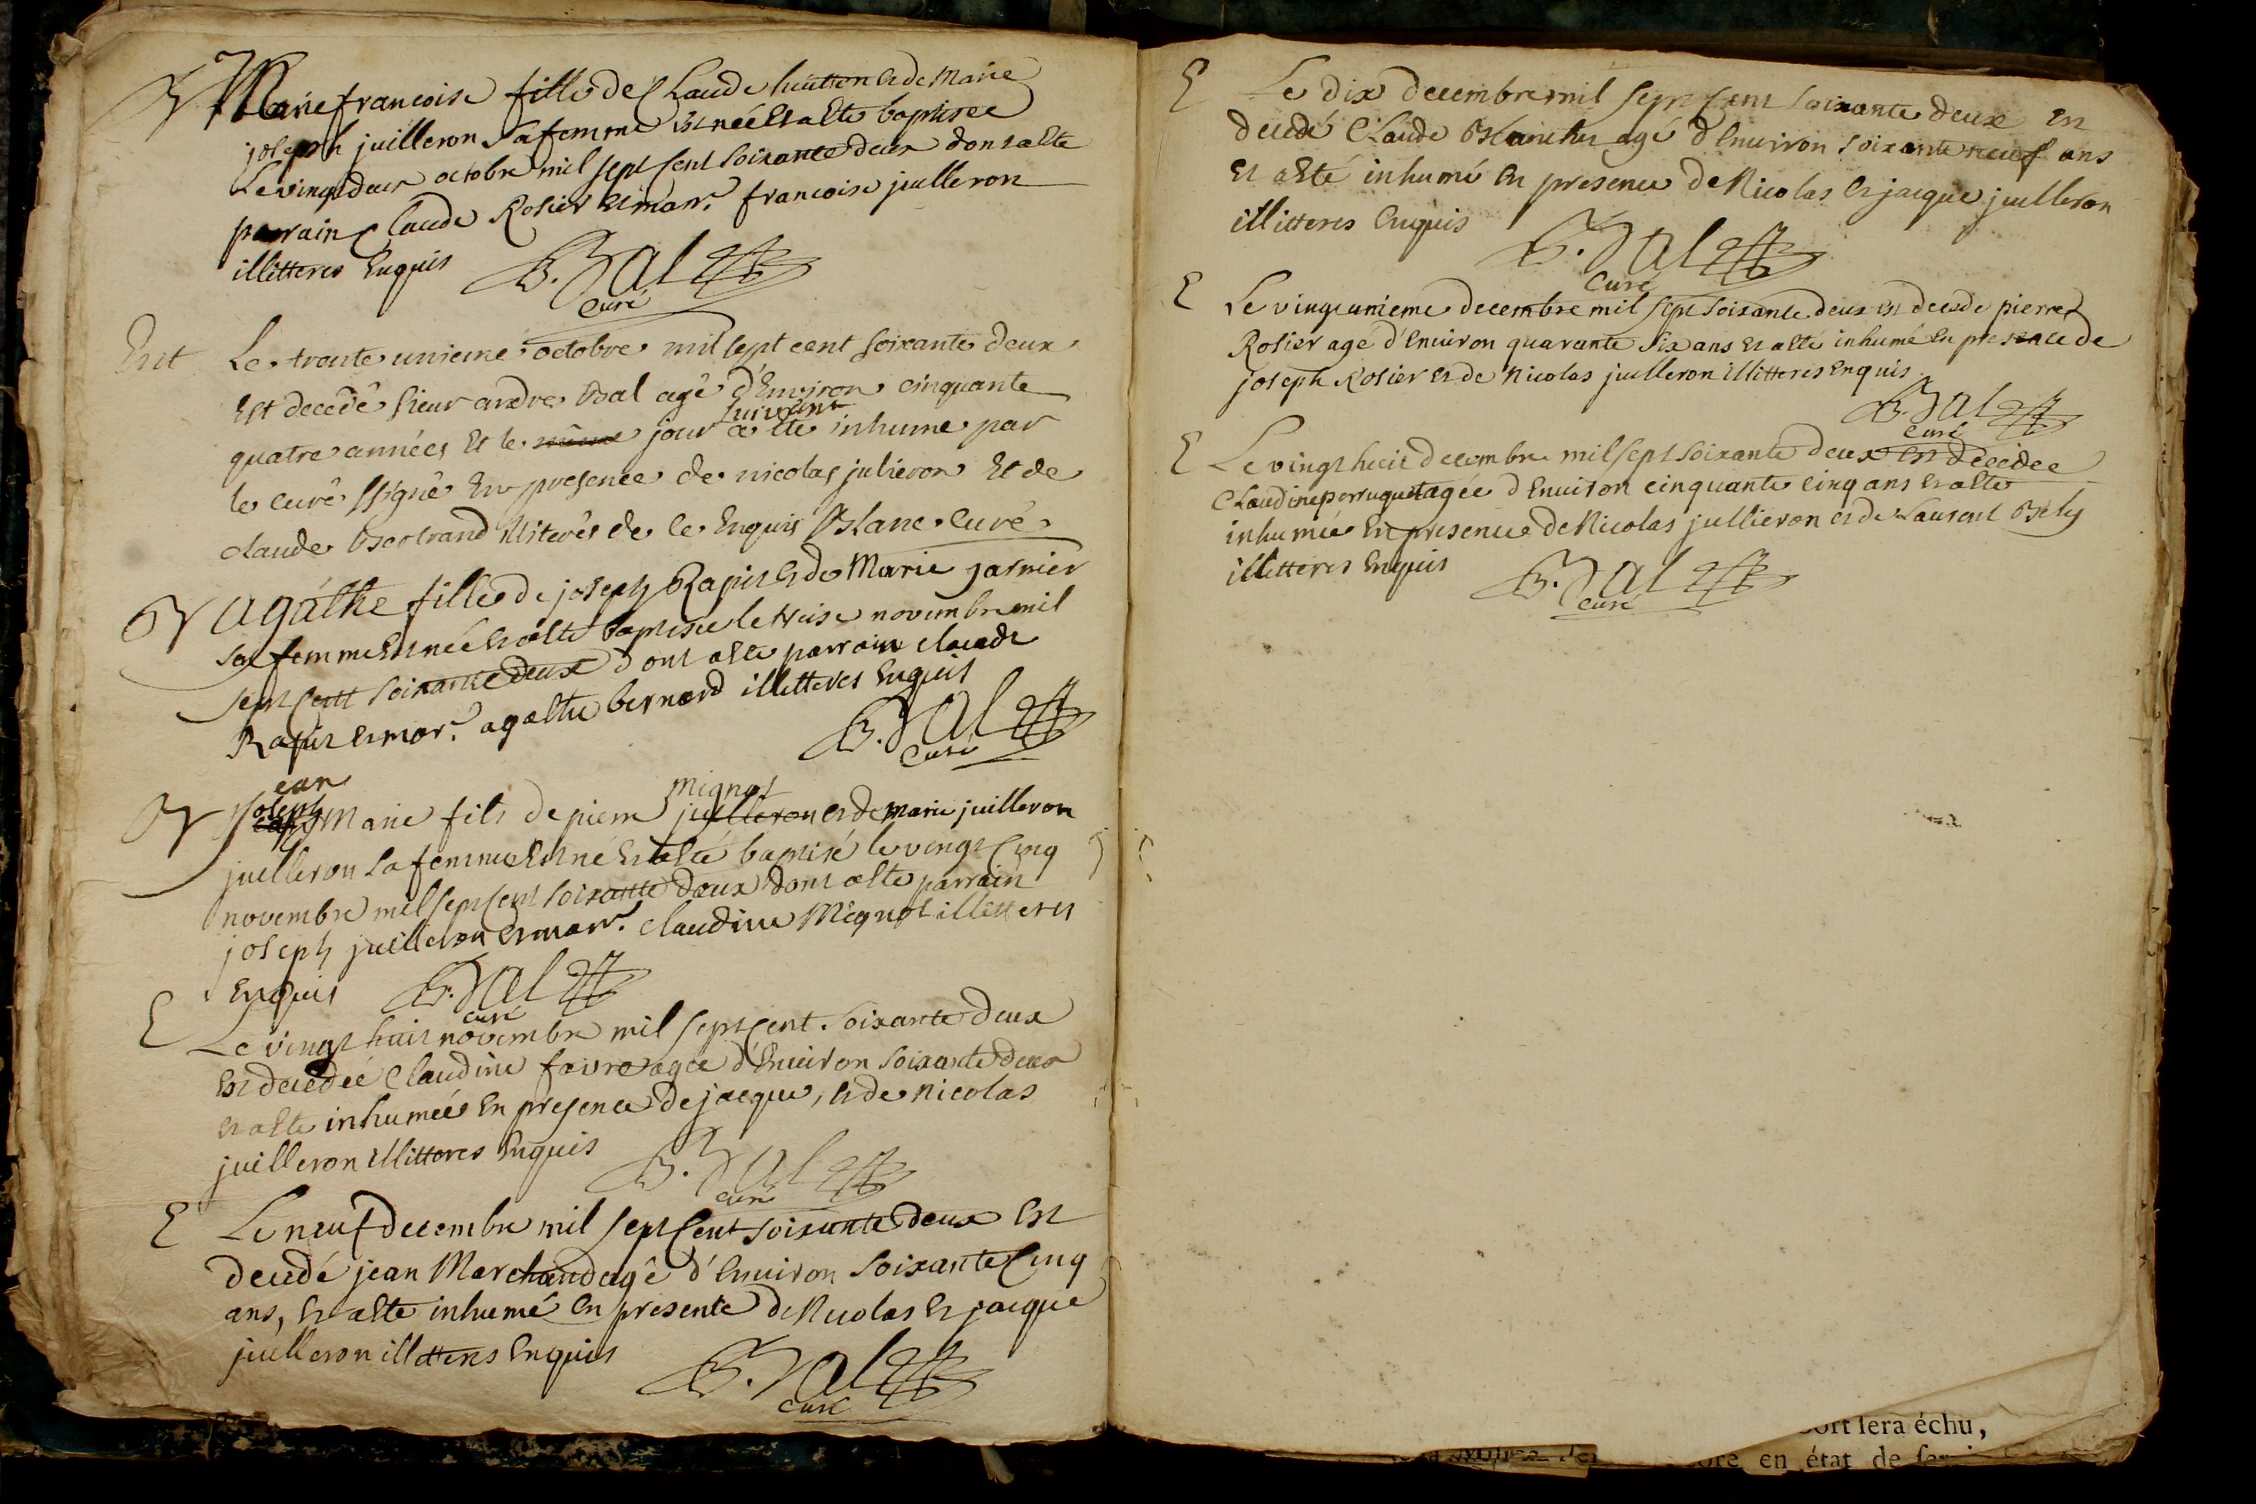 B Marie francoise fille de Claude hutton et de Marie
joseph juilleron sa femme est née et a esté baptisée
Le vingt deux octobre mil sept cent soixante deux dont a esté
parrain Claude Rosier et marr. francoise juilleron
illitteres Enquis B. Bal
Curé
Ent Le trente unieme octobre mil sept cent soixante deux
Est decedê sieur andre Bal agê d'Environ cinquante
suivant
quatre années Et le même jour a ete inhume par
le curê ssignê En presence de nicolas julieron Et de
claude Bertrand illiterês de ce Enquis Blanc Curé
B agathe fille de joseph Rapin et de Marie garnier
sa femme Est née et a esté baptisée le treise novembre mil
sept Cent soixante deux dont a esté parrain claude
Rapin et mar. agathe bernard illitteres Enquis
B. Bal
Curé
ean
Mignot
B joseph Marie fils de pierre juilleron et de marie juilleron
juilleron sa femme Est né Et a esté baptisé le vingt Cinq
novembre mil sept Cent soixante deux dont a esté parrain
joseph juilleron et marr. claudine Mignot illitteres
Enquis B. Bal
curé
E Le vingt huit novembre mil sept Cent soixante deux
Est decedée Claudine favre agée d'Environ soixante deux
et a esté inhumée En presence de jacque, et de Nicolas
juilleron illitteres Enquis B. Bal
curé
E Le neuf decembre mil sept Cent soixante deux Est
decedé jean Marchand agê d'Environ soixante Cinq
ans, Et a esté inhumé en presente de Nicolas Et jacque
juilleron illitteres Enquis B. Bal
Curé
E Le dix decembre mil sept Cent soixante deux est
decedé Claude Blanchet agé d'Environ soixante neuf ans
et a esté inhumé En presence de Nicolas et jacque juilleron
illitteres Enquis B. Bal
Curé
E Le vingt unieme decembre mil sept soixante deux est decedé pierre
Rosier agé d'Environ quarante six ans et a esté inhumé En presence de
joseph Rosier et de Nicolas juilleron illitteres Enquis
B. Bal
Curé
E Le vingt huit decembre mil sept soixante deux est decedée
Claudine perruquet agée d'Environ cinquante cinq ans et a esté
inhumée En presence de Nicolas jullieron et de Laurent Bely
illitteres Enquis B. Bal
curé
ort sera échu,
en état de